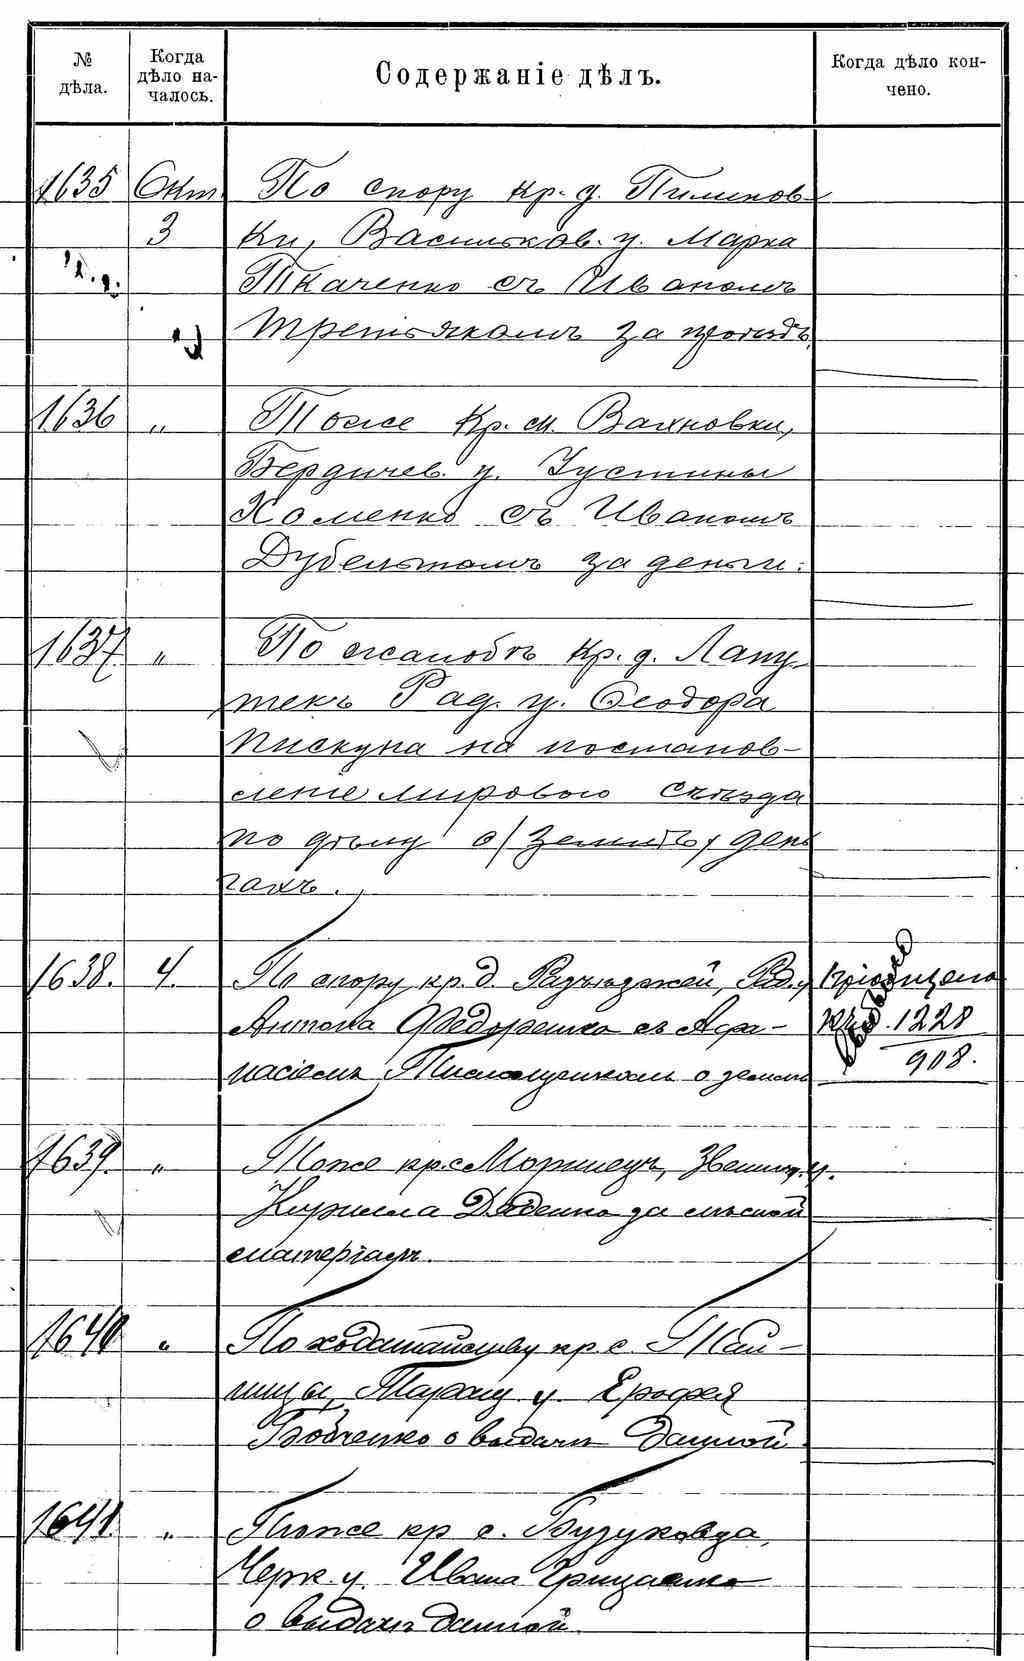 № дѣла.
Когда дѣло на-
чалось.
Содержаніе дѣлъ.
Когда дѣло кон-
чено.
1635 Окт. По спору кр. д. Пилипов-
3 ки, Васильков. у. Марка
Ткаченко съ Иваномъ
Третьякомъ за проѣздъ.
1636 „ Тоже кр. м. Вахновки,
Бердичев. у. Устины
Хоменко съ Иваномъ
Дубельтомъ за деньги.
1637 „ По жалобѣ кр. д. Лапу-
текъ Рад. у. Ѳеодора
Пискуна на постанов-
леніе мирового съѣзда
по дѣлу о землѣ, день
гахъ.
1638. 4. По спору кр. д. Рад. у
Антона Федоренка съ Афа-
насіемъ о землѣ
къ 1228
908.
1639. „ Тоже кр. с. Моринецъ, Звениг. у.
Кирилла Деденка за лѣсной
матеріалъ.
1640 „ По ходатайству кр. с. Ган-
нищы, Таращ. у. Ерофея
Бобченко о выдачи данной.
1641. „ Тоже кр. с. Бузуковца,
Черк. у. Ивана Грицаенко
о выдачи данной.